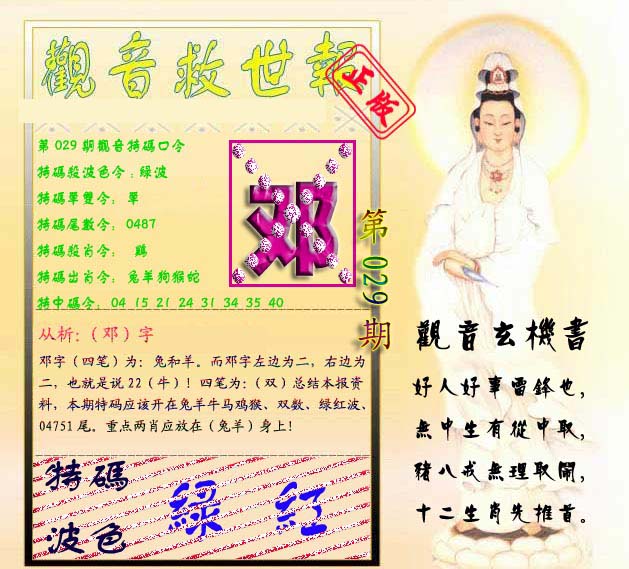 觀音救世報
正版
第 029 期觀音特碼口令
特碼殺波色令：綠波
特碼單雙令： 單
特碼尾數令： 0487
特碼殺肖令： 鷄
特碼出肖令： 兔羊狗猴蛇
特中碼令： 04 15 21 24 31 34 35 40
邓
第 029 期
从析:（邓）字
邓字（四笔）为：兔和羊。而邓字左边为二，右边为
二，也就是说22（牛）！四笔为：（双）总结本报资
料，本期特码应该开在兔羊牛马鸡猴、双数、绿红波、
04751 尾。重点两肖应放在（兔羊）身上！
特碼
波色
綠 紅
觀音玄機書
好人好事雷鋒也，
無中生有從中取，
豬八戒無理取鬧，
十二生肖先推首。